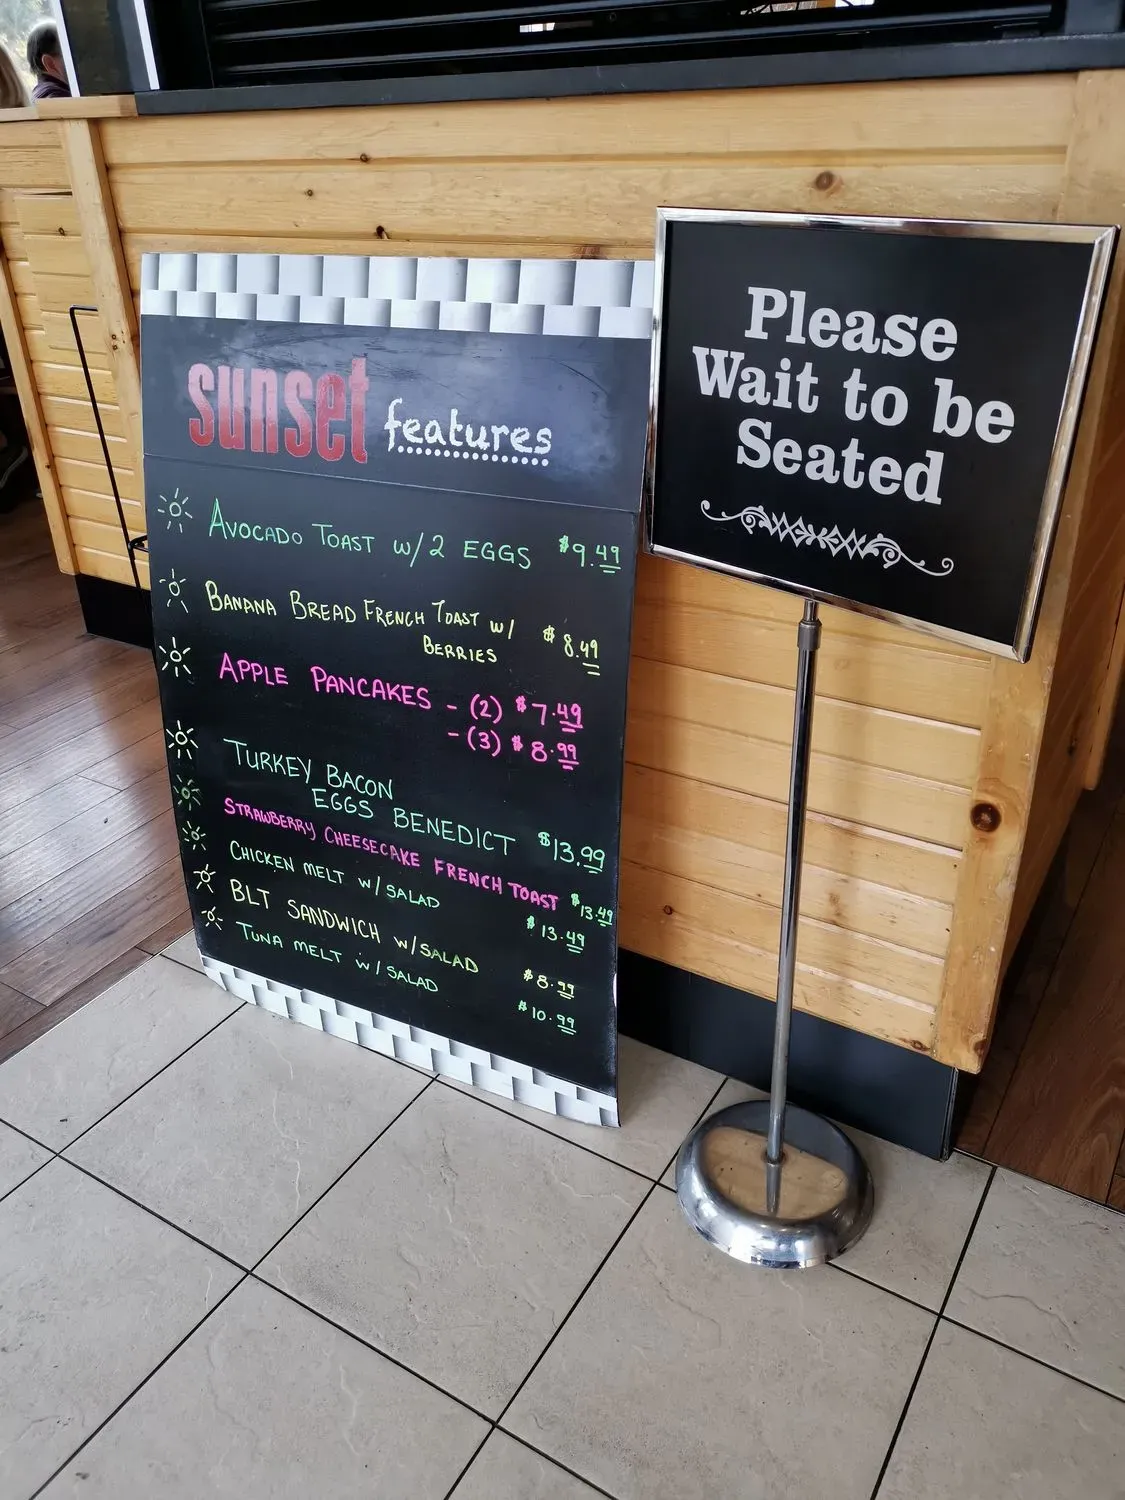 sunset features
AVOCADO TOAST w/2 EGGS $9.49
BANANA BREAD FRENCH TOAST w/ $8.49
BERRIES
APPLE PANCAKES - (2) $7.49
- (3) $8.99
TURKEY BACON
EGGS BENEDICT $13.99
STRAWBERRY CHEESECAKE FRENCH TOAST $13.49
CHICKEN MELT w/SALAD $13.49
BLT SANDWICH w/SALAD $8.99
TUNA MELT w/SALAD $10.99
Please
Wait to be
Seated